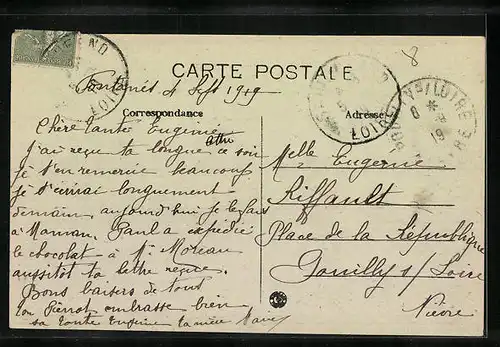 CARTE POSTALE
4 Sept 1919
8
Correspondance
Adresse
Chère tante Eugénie
J'ai reçu ta longue lettre ce soir
je t'en remercie beaucoup
je longuement
demain aujourd'hui je le fais
à Maman. Paul a expédié
le chocolat à Mr Moreau
aussitot ta lettre reçue.
Bons baisers de tous
ton Pierrot embrasse bien
sa tante Eugénie ta nièce
Melle Eugenie
Riffault
Place de la République
Pouilly s/ Loire
Nièvre
LOIRE
LOIRE
S/LOIRE